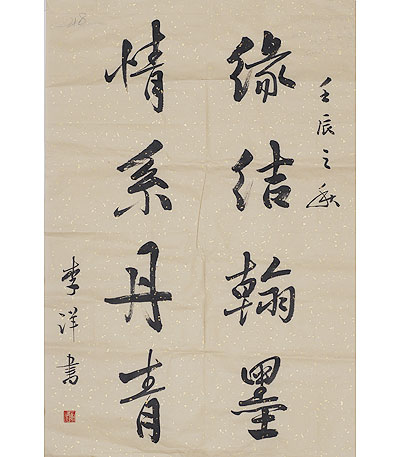 壬辰之秋
缘结翰墨
情系丹青
李洋书